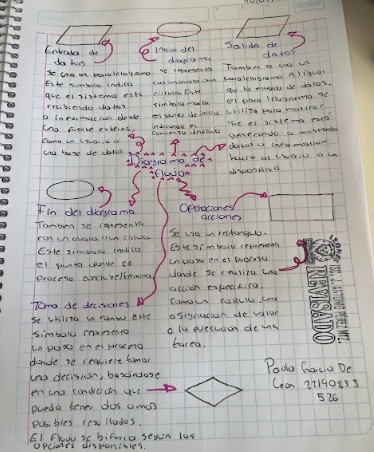 Entrada de
datos
Se usa un paralelogramo
Este simbolo indica
que el sistema esta
recibiendo datos
o informacion desde
una fuente externa,
como un usuario o
una base de datos.
Inicio del
diagrama
se representa
circulo Este
simbolo marca
el punto donde
Salida de
datos
Tambien se usa un
paralelogramo Al igual
que la entrada de datos,
el paralelogramo se
utiliza para mostrar
que el sistema está
generando o mostrando
datos o informacion
hacia al usuario o un
dispositivo
Diagrama de
flujo
Fin del diagrama
Tambien se representa
con un ovalo o un circulo
Este simbolo indica
el punto donde el
proceso concluye/termina
Operaciones/
acciones
Se usa un rectangulo.
Este simbolo representa
un paso en el proceso
donde se realiza una
acción especifica,
como un calculo, una
asignacion de valor
o la ejecucion de una
tarea.
Toma de decisiones
Se utiliza un rombo Este
simbolo representa
un paso en el proceso
donde se requiere tomar
una decisión, basandose
en una condición que
puede tener dos o mas
posibles resultados.
El flujo se bifurca segun las
opciones disponibles.
REVISADO
Paola Garcia De
Leon 22190833
526